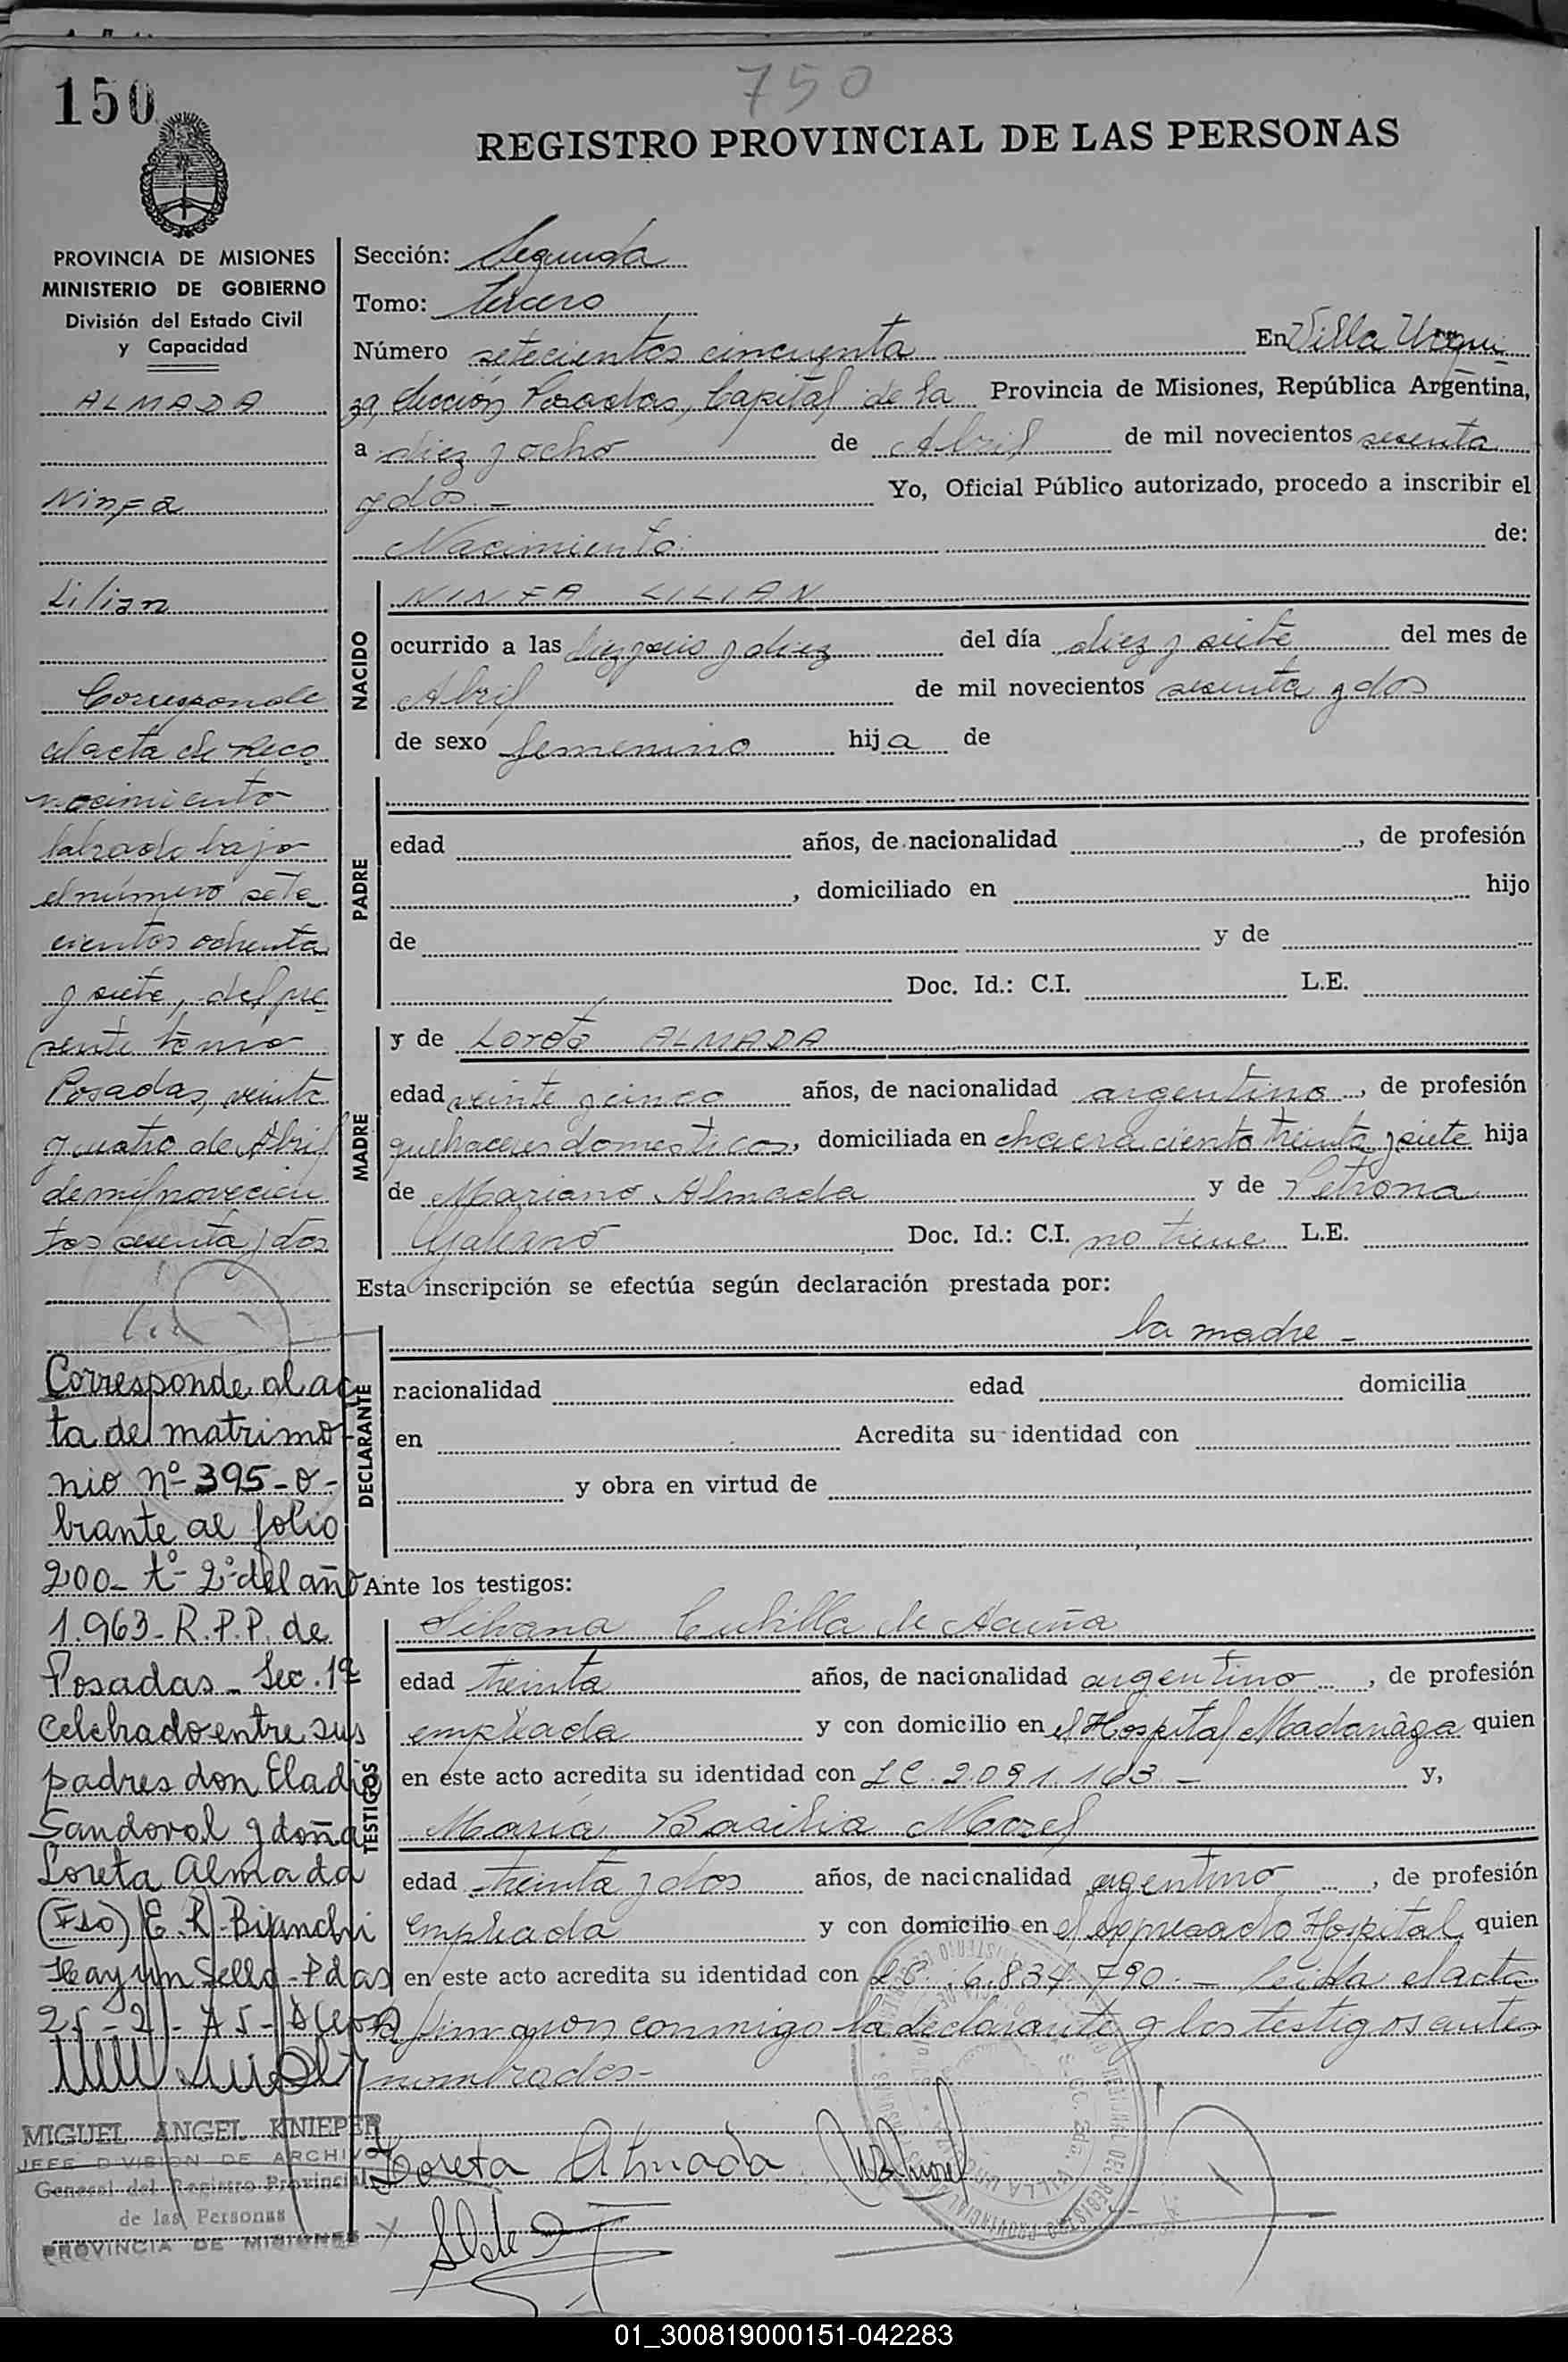 150
750
REGISTRO PROVINCIAL DE LAS PERSONAS
PROVINCIA DE MISIONES
MINISTERIO DE GOBIERNO
División del Estado Civil
y Capacidad
ALMADA
Ninfa
Lilian
Corresponde
al acta de Reco
nocimiento
labrado bajo
el número sete
cientos ochenta
y siete, del pre
sente tomo
Posadas, veinte
y cuatro de Abril
de mil novecien
tos sesenta y dos
Corresponde al ac
ta del matrimo-
nio nº 395-o-
brante al folio
200- tº- 2º del año
1.963- R.P.P. de
Posadas- Sec. 1ª
Celebrado entre sus
padres don Eladio
Sandoval y doña
Loreta Almada
(Fdo) E. R. Bianchi
Hay un Sello - Pdas
25-2-75-
MIGUEL ANGEL KNIEPER
JEFE DIVISION DE ARCHIVO
General del Registro Provincial
de las Personas
PROVINCIA DE MISIONES
Sección: Segunda
Tomo: Tercero
Número setecientos cincuenta En Villa Urqui-
za, Sección Posadas, Capital de la Provincia de Misiones, República Argentina,
a diez y ocho de Abril de mil novecientos sesenta
y dos.- Yo, Oficial Público autorizado, procedo a inscribir el
Nacimiento de:
NACIDO
NINFA LILIAN
ocurrido a las diez y seis y diez del día diez y siete del mes de
Abril de mil novecientos sesenta y dos
de sexo femenino hija de
PADRE
edad años, de nacionalidad , de profesión
, domiciliado en hijo
de y de
Doc. Id.: C.I. L.E.
MADRE
y de Loreta ALMADA
edad veinte y cinco años, de nacionalidad argentina, de profesión
quehaceres domesticos, domiciliada en chacra ciento treinta y siete hija
de Mariano Almada y de Petrona
Galeano Doc. Id.: C.I. no tiene L.E.
Esta inscripción se efectúa según declaración prestada por:
la madre -
DECLARANTE
racionalidad edad domicilia
en Acredita su identidad con
y obra en virtud de
Ante los testigos:
TESTIGOS
Silvana Cubilla de Acuña
edad treinta años, de nacionalidad argentino, de profesión
empleada y con domicilio en el Hospital Madariaga quien
en este acto acredita su identidad con LC. 2.091.163 - y,
María Basilia Morel
edad treinta y dos años, de nacionalidad argentino, de profesión
empleada y con domicilio en el expresado Hospital quien
en este acto acredita su identidad con LC. 6.834.790.- Leida el acta
la firmaron conmigo la declarante y los testigos antes
nombrados-
Loreta Almada
01_300819000151-042283